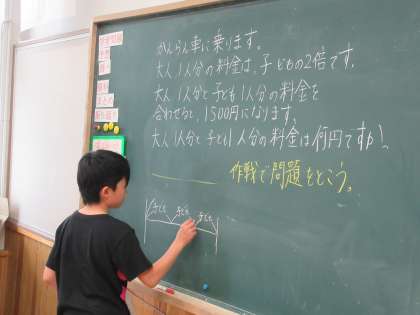 かんらん車に乗ります。
大人1人分の料金は、子どもの2倍です。
大人1人分と子ども1人分の料金を
合わせると、1500円になります。
大人1人分と子ども1人分の料金は何円ですか。
作戦で問題をとこう。
子ども 子ども 子ども